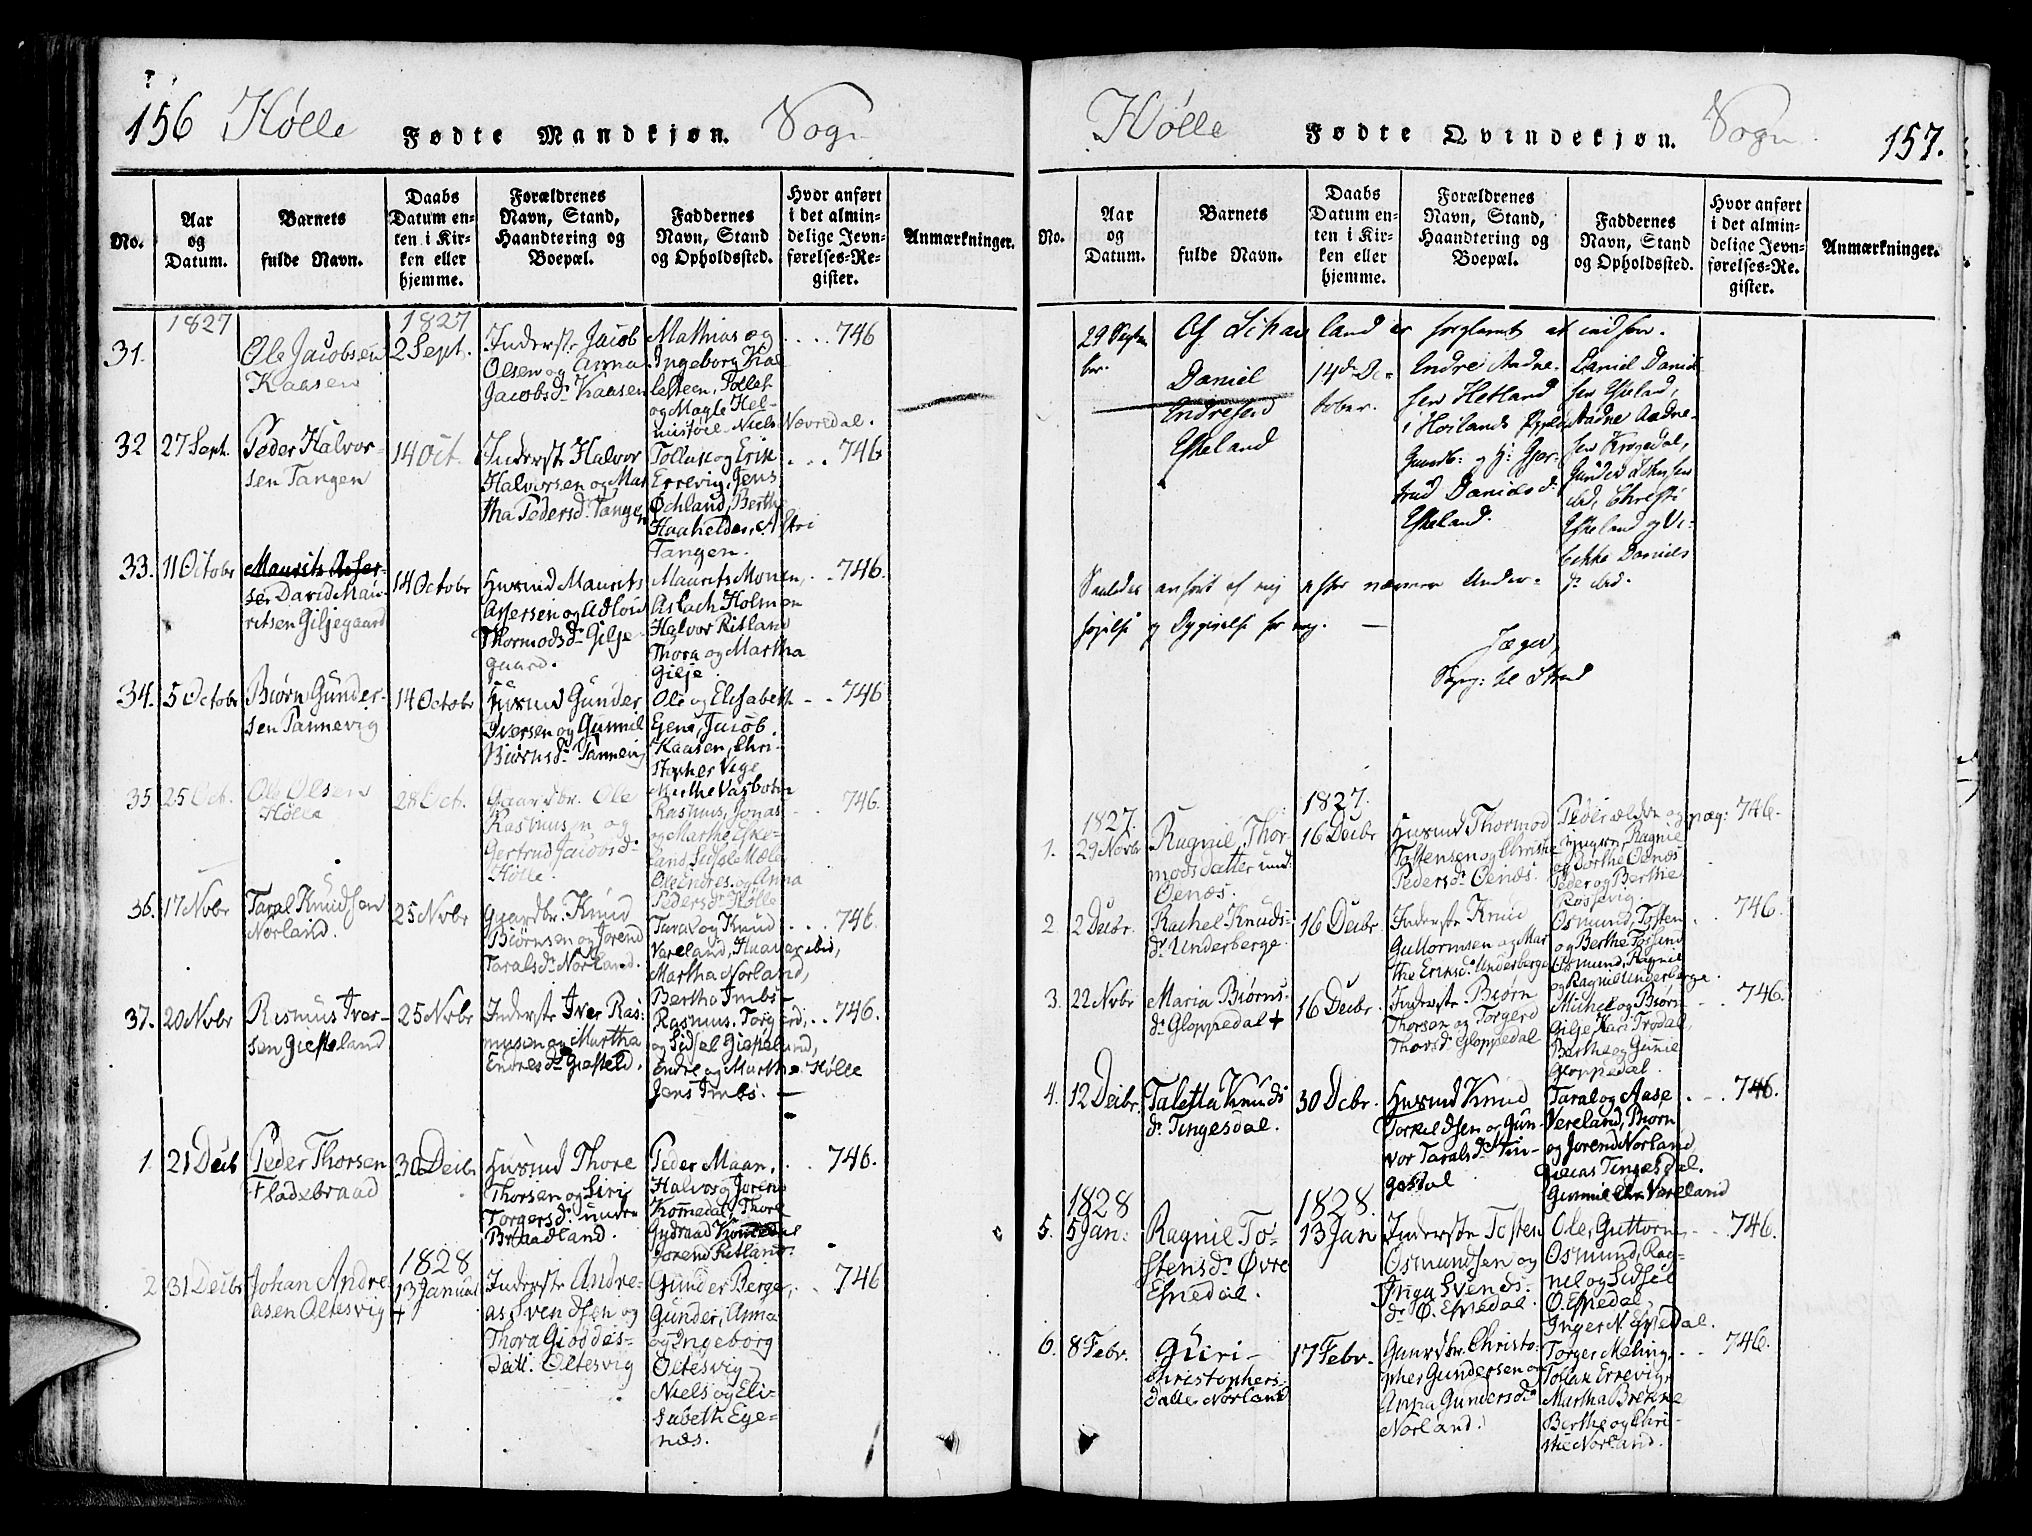 156 Hølle Fødte Mandkjøn. Sogn
No.
Aar
og
Datum.
Barnets
fulde Navn.
Daabs
Datum en-
ten i Kir-
ken eller
hjemme.
Forældrenes
Navn, Stand,
Haandtering og
Boepæl.
Faddernes
Navn, Stand
og Opholdssted.
Hvor anført
i det almin-
delige Jevn-
førelses-Re-
gister.
Anmærkninger.
1827
1827
31.
Ole Jacobsen
Kaasen
2 Sept.
Inderste Jacob
Olsen og Anna
Jacobsd. Kaasen
Mathias og
Ingeborg Kal
lesteen, Tollef
og Magle Hel-
mistøel Niels Nævredal.
746
32
27 Sept.
Peder Halvor-
sen Tangen
14 Oct.
Inderste Halvor
Halvorsen og Mar
tha Pedersd. Tangen
Tollak og Erik
Errevig, Jens
Øchland, Berthe
Haahelder, Astri
Tangen.
746
33.
11 Octobr
Maurits Asser-
sen David Mau-
ritsen Giljegaard
14 Octobr
Husmd Maurits
Assersen og Adloug
Thormodsd. Gilje
gaard.
Maurits Monen,
Aslach Holmen
Halvor Ritland
Thora og Martha
Gilje
746.
34.
5 Octobr
Biørn Gunder-
sen Tannevig
14 Octobr
Husmd Gunder
Iversen og Gunnil
Biørnsd. Tannevig
Ole og Elisabeth
Egene, Jacob
Kaasen, Chri-
stopher Vage
Merthe Vasboten
746
35
25 Oct.
Ole Olsen
Hølle
28 Oct.
Gaardbr. Ole
Rasmusen og
Gertrud Jacobsd.
Hølle.
Rasmus, Jonas
og Marthe Eske-
land Sidsele Mæle
Ole Endres. og Anna
Pedersd. Hølle
746.
36.
17 Novbr
Taral Knudsen
Norland.
25 Novbr
Gaardbr. Knud
Biørnsen og Jorend
Taralsd. Norland.
Taral og Knud
Vareland, Haaver ibid,
Martha Norland,
Bertha Imbs
746
37.
20 Novbr
Rasmus Iver-
sen Gieskeland
25 Novbr
Inderste Iver Ras-
musen og Martha
Endresd. Gieskeld.
Rasmus, Torgerd,
og Sidsel Gieskeland,
Endre og Martha Hølle
Jens Imbs.
746.
1.
21 Decbr
Peder Thorsen
Fladebraad
30 Decbr
Husmd Thore
Thorsen og Siri
Torgersd. undre
Braadland.
Peder Maan,
Halvor og Jorend
Komedal, Thore
Gydraad Komedal
Jorend Ritland.
746.
1828
2
31 Decbr
Johan Andre
asen Oltesvig
13 Januar
+
Inderste Andre-
as Svendsen og
Thora Giøødes-
datt. Oltesvig
Gunder Berge,
Gunder, Anna
og Ingeborg
Oltesvig
Niels og Eli-
sabeth Ege-
næs.
746
Hølle Fødte Qvindekjøn. Sogn 157.
No.
Aar
og
Datum.
Barnets
fulde Navn.
Daabs
Datum en-
ten i Kir-
ken eller
hjemme.
Forældrenes
Navn, Stand,
Haandtering og
Boepæl.
Faddernes
Navn, Stand
og Opholdssted.
Hvor anført
i det almin-
delige Jevn-
førelses-Re-
gister.
Anmærkninger.
Af land er forglemt at indføre.
29 Septem
ber.
Daniel
Endresen
Eskeland
14d. Oc-
tober.
Endre Aadne-
sen Hetland
i Høilands
Gaardb: og H: Gjer-
trud Danielsd.
Eskeland.
Daniel Daniel
sen Eskeland,
Aadne Aadne-
sen Krogedal,
Gunder
ibd, Christi
Eskeland og Vi-
bekke Daniels
d. ibd.
Saaledes anført af mig efter nærmere Under-
søgelse og Opgivelse for mig.
Jæger,
Sogpr: til Strand
1827.
1827.
1.
29 Novbr
Ragnil Thor-
modsdatter und:
Oenæs.
16 Decbr
Husmd Thormod
Tostensen og Christie
Pedersd. Oenæs.
Peder
Ragnil
og Dorthe Oenæs
Peder og Berthe
Rossevig.
746.
2.
2 Decbr.
Rachel Knuds-
d. Underberge
16 Decbr
Inderste Knud
Guttormsen og Mar
the Eriksd. Underberge
Osmund, Tosten
og Berthe Fossend
Osmund, Ragnil
og Ragnil Underberge.
746.
3.
22 Novbr
Maria Biørns-
d. Gloppedal +
16 Decbr
Inderste Biørn
Thorsen og Torgerd
Thorsd. Gloppedal
Michel og Biørn
Gilje Kari Trodal,
Berthe og Gunnil
Gloppedal.
746.
4.
12 Decbr.
Taletta Knuds
d. Tingesdal.
30 Dcbr.
Husmd Knud
Torkeldsen og Gun-
vor Taralsd. Tin-
gesdal
Taral og Aase
Vereland, Biørn
og Jorend Norland
Elias Tingesdal.
Gunnil Chr. Vareland
746.
1828
1828.
5.
5 Jan:
Ragnil To-
stensd. Øvre
Espedal.
13 Jan
Inderste Tosten
Osmundsen og
Inga Svends-
d. Ø. Espedal.
Ole, Guttorm
Osmund, Rag-
nel og Sidsel
Ø. Espedal,
Inger N. Espedal.
746.
6.
8 Febr.
Guri
Christophers-
datter Norland
17 Febr.
Gaardbr. Christo-
pher Gundersen og
Anna Gundersd.
Norland.
Torger Meling,
Tollak Errevig,
Martha Brekke
Berthe og Chri-
stie Norland.
746.